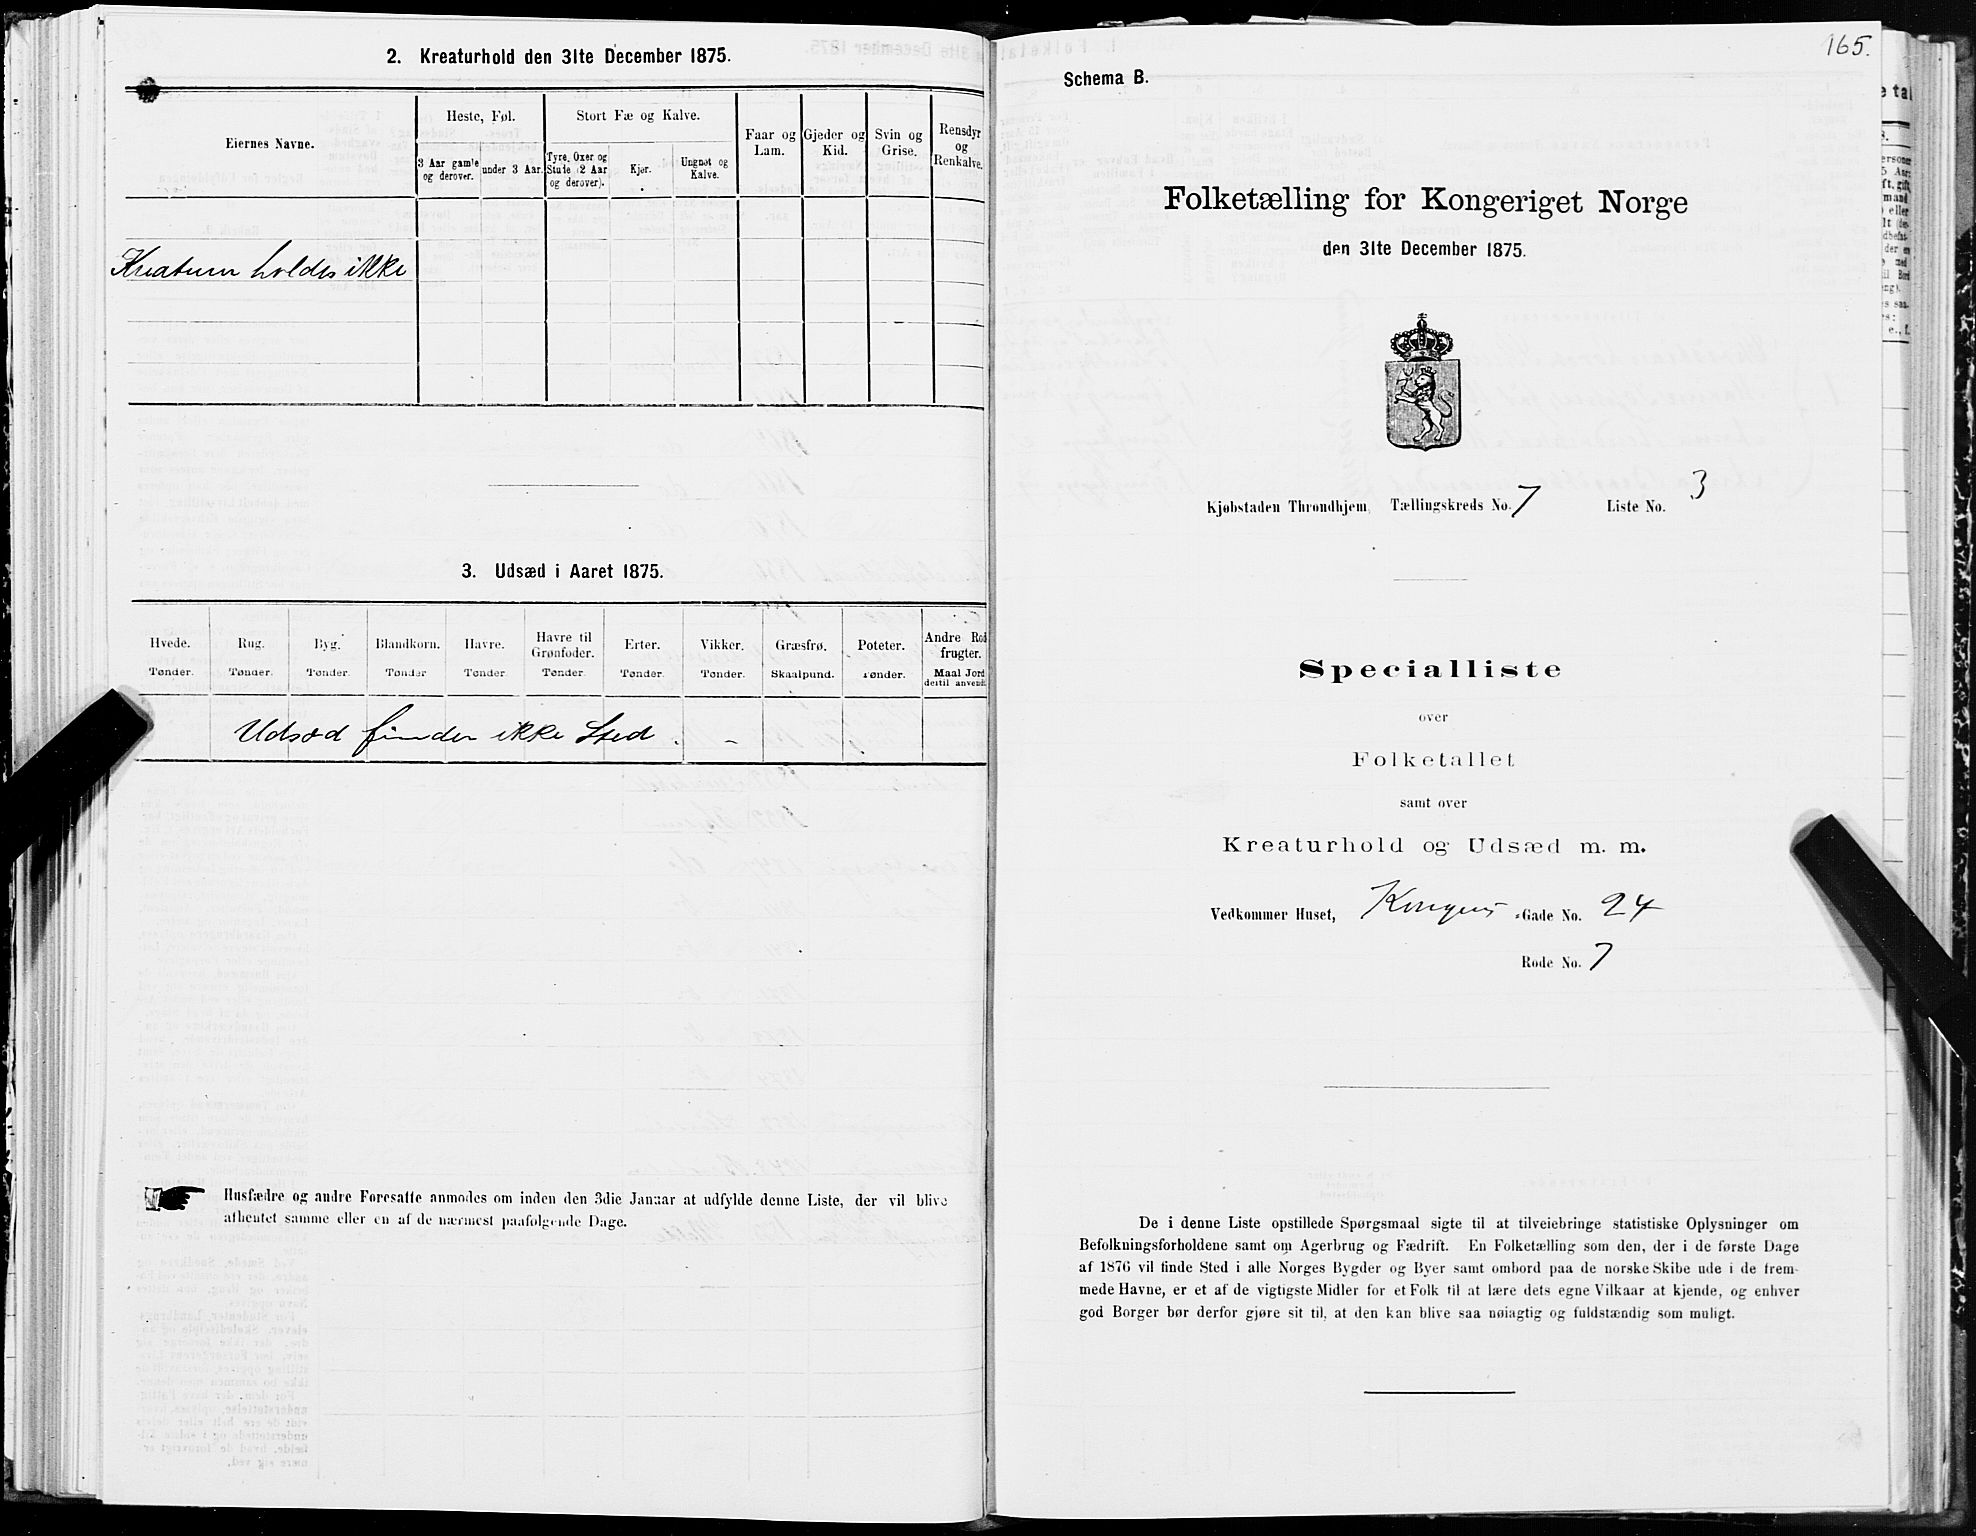 2. Kreaturhold den 31te December 1875.
Eiernes Navne.
Heste, Føl.
Stort Fæ og Kalve.
Faar og
Lam.
Gjeder og
Kid.
Svin og
Grise.
Rensdyr
og
Renkalve.
3 Aar gamle
og derover.
under 3 Aar.
Tyre, Oxer og
Stude (2 Aar
og derover).
Kjør.
Ungnøt og
Kalve.
Kreaturer holdes ikke
3. Udsæd i Aaret 1875.
Hvede.
Tønder.
Rug.
Tønder.
Byg.
Tønder.
Blandkorn.
Tønder
Havre.
Tønder
Havre til
Grønfoder.
Tønder
Erter.
Tønder.
Vikker.
Tønder.
Græsfrø.
Skaalpund.
Poteter.
Tønder.
Andre Rod
frugter.
Maal Jord
dertil anvendt
Udsæd finder ikke Sted. –
Husfædre og andre Foresatte anmodes om inden den 3die Januar at udfylde denne Liste, der vil blive
afhentet samme eller en af de nærmest paafølgende Dage.
165.
Schema B.
Folketælling for Kongeriget Norge
den 31te December 1875.
Kjøbstaden Throndhjem, Tællingskreds No. 7 Liste No. 3
Specialliste
over
Folketallet
samt over
Kreaturhold og Udsæd m. m.
Vedkommer Huset, Kongens -Gade No. 24
Rode No. 7
De i denne Liste opstillede Spørgsmaal sigte til at tilveiebringe statistiske Oplysninger om
Befolkningsforholdene samt om Agerbrug og Fædrift. En Folketælling som den, der i de første Dage
af 1876 vil finde Sted i alle Norges Bygder og Byer samt ombord paa de norske Skibe ude i de frem-
mede Havne, er et af de vigtigste Midler for et Folk til at lære dets egne Vilkaar at kjende, og enhver
god Borger bør derfor gjøre sit til, at den kan blive saa nøiagtig og fuldstændig som muligt.